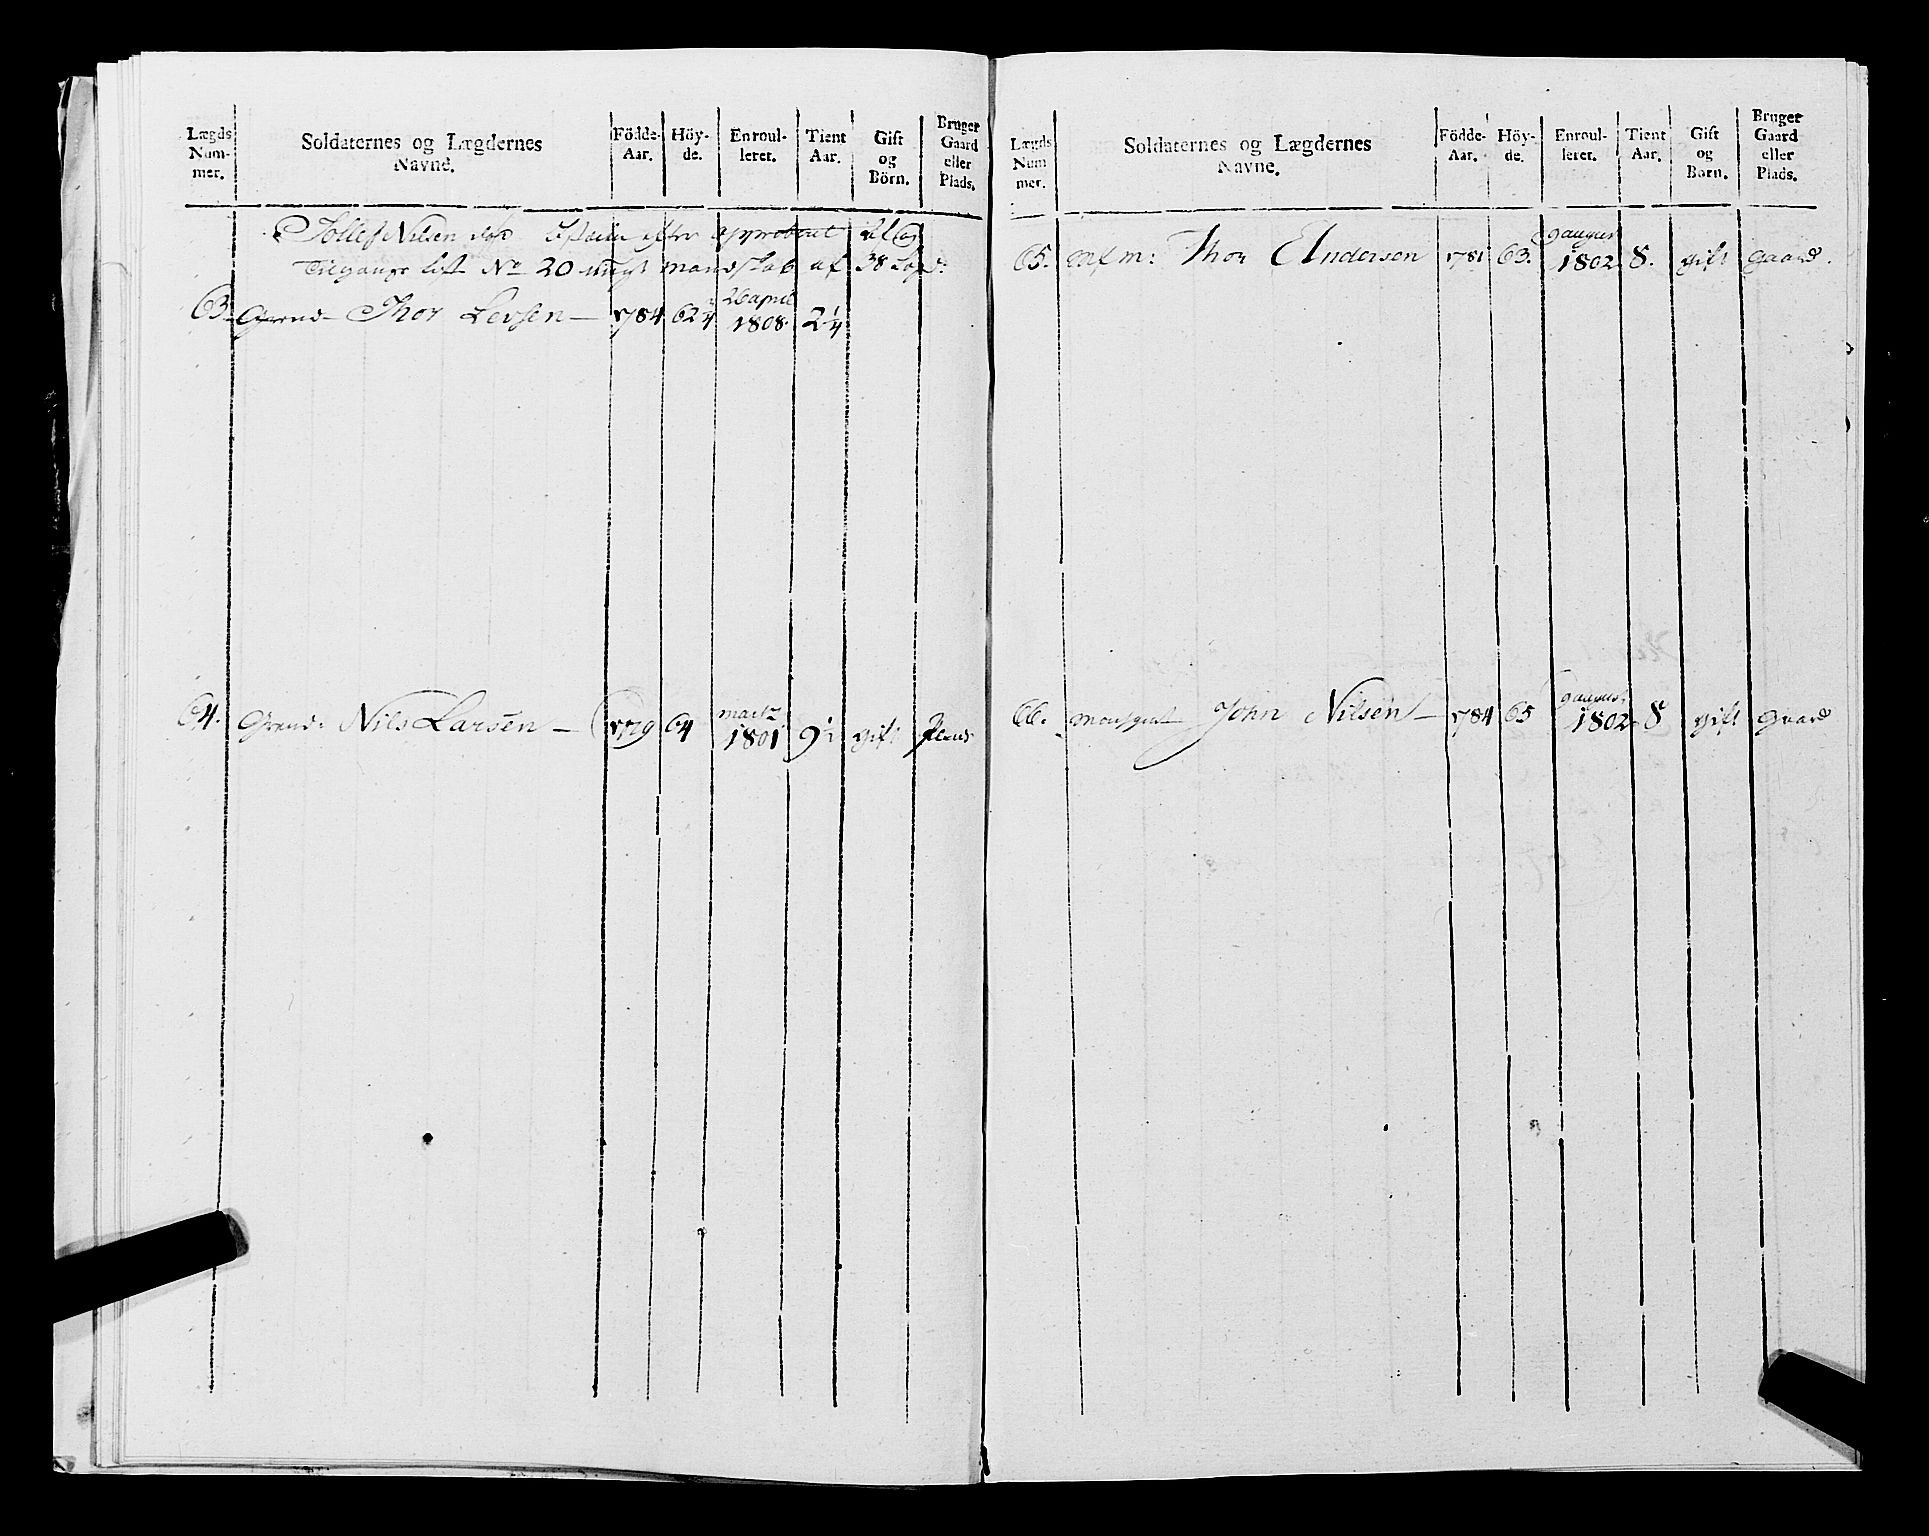 Lægds Num- mer. Soldaternes og Lægdernes Navne. Födde- Aar. Höy- de. Enroul- leret. Tient Aar. Gift og Börn. Bruger Gaard eller Plads.
Tollef Nilsen død
Tilgangs list No 20 ungt mandskab af 38
63 Grend Thor Levsen — 1784 62 1/4 26 april 1808 2 1/4
64. Grend: Nils Larsen — 1779 64 martz 1801 9 1 gift Plads
Lægds Num mer. Soldaternes og Lægdernes Navne. Födde- Aar. Höy- de. Enroul- leret. Tient Aar. Gift og Börn. Bruger Gaard eller Plads.
65. Thor Andersen 1781 63. 9 august 1802 8. gift gaard.
66. John Nilsen — 1784 65 9 august 1802 8 gift gaard